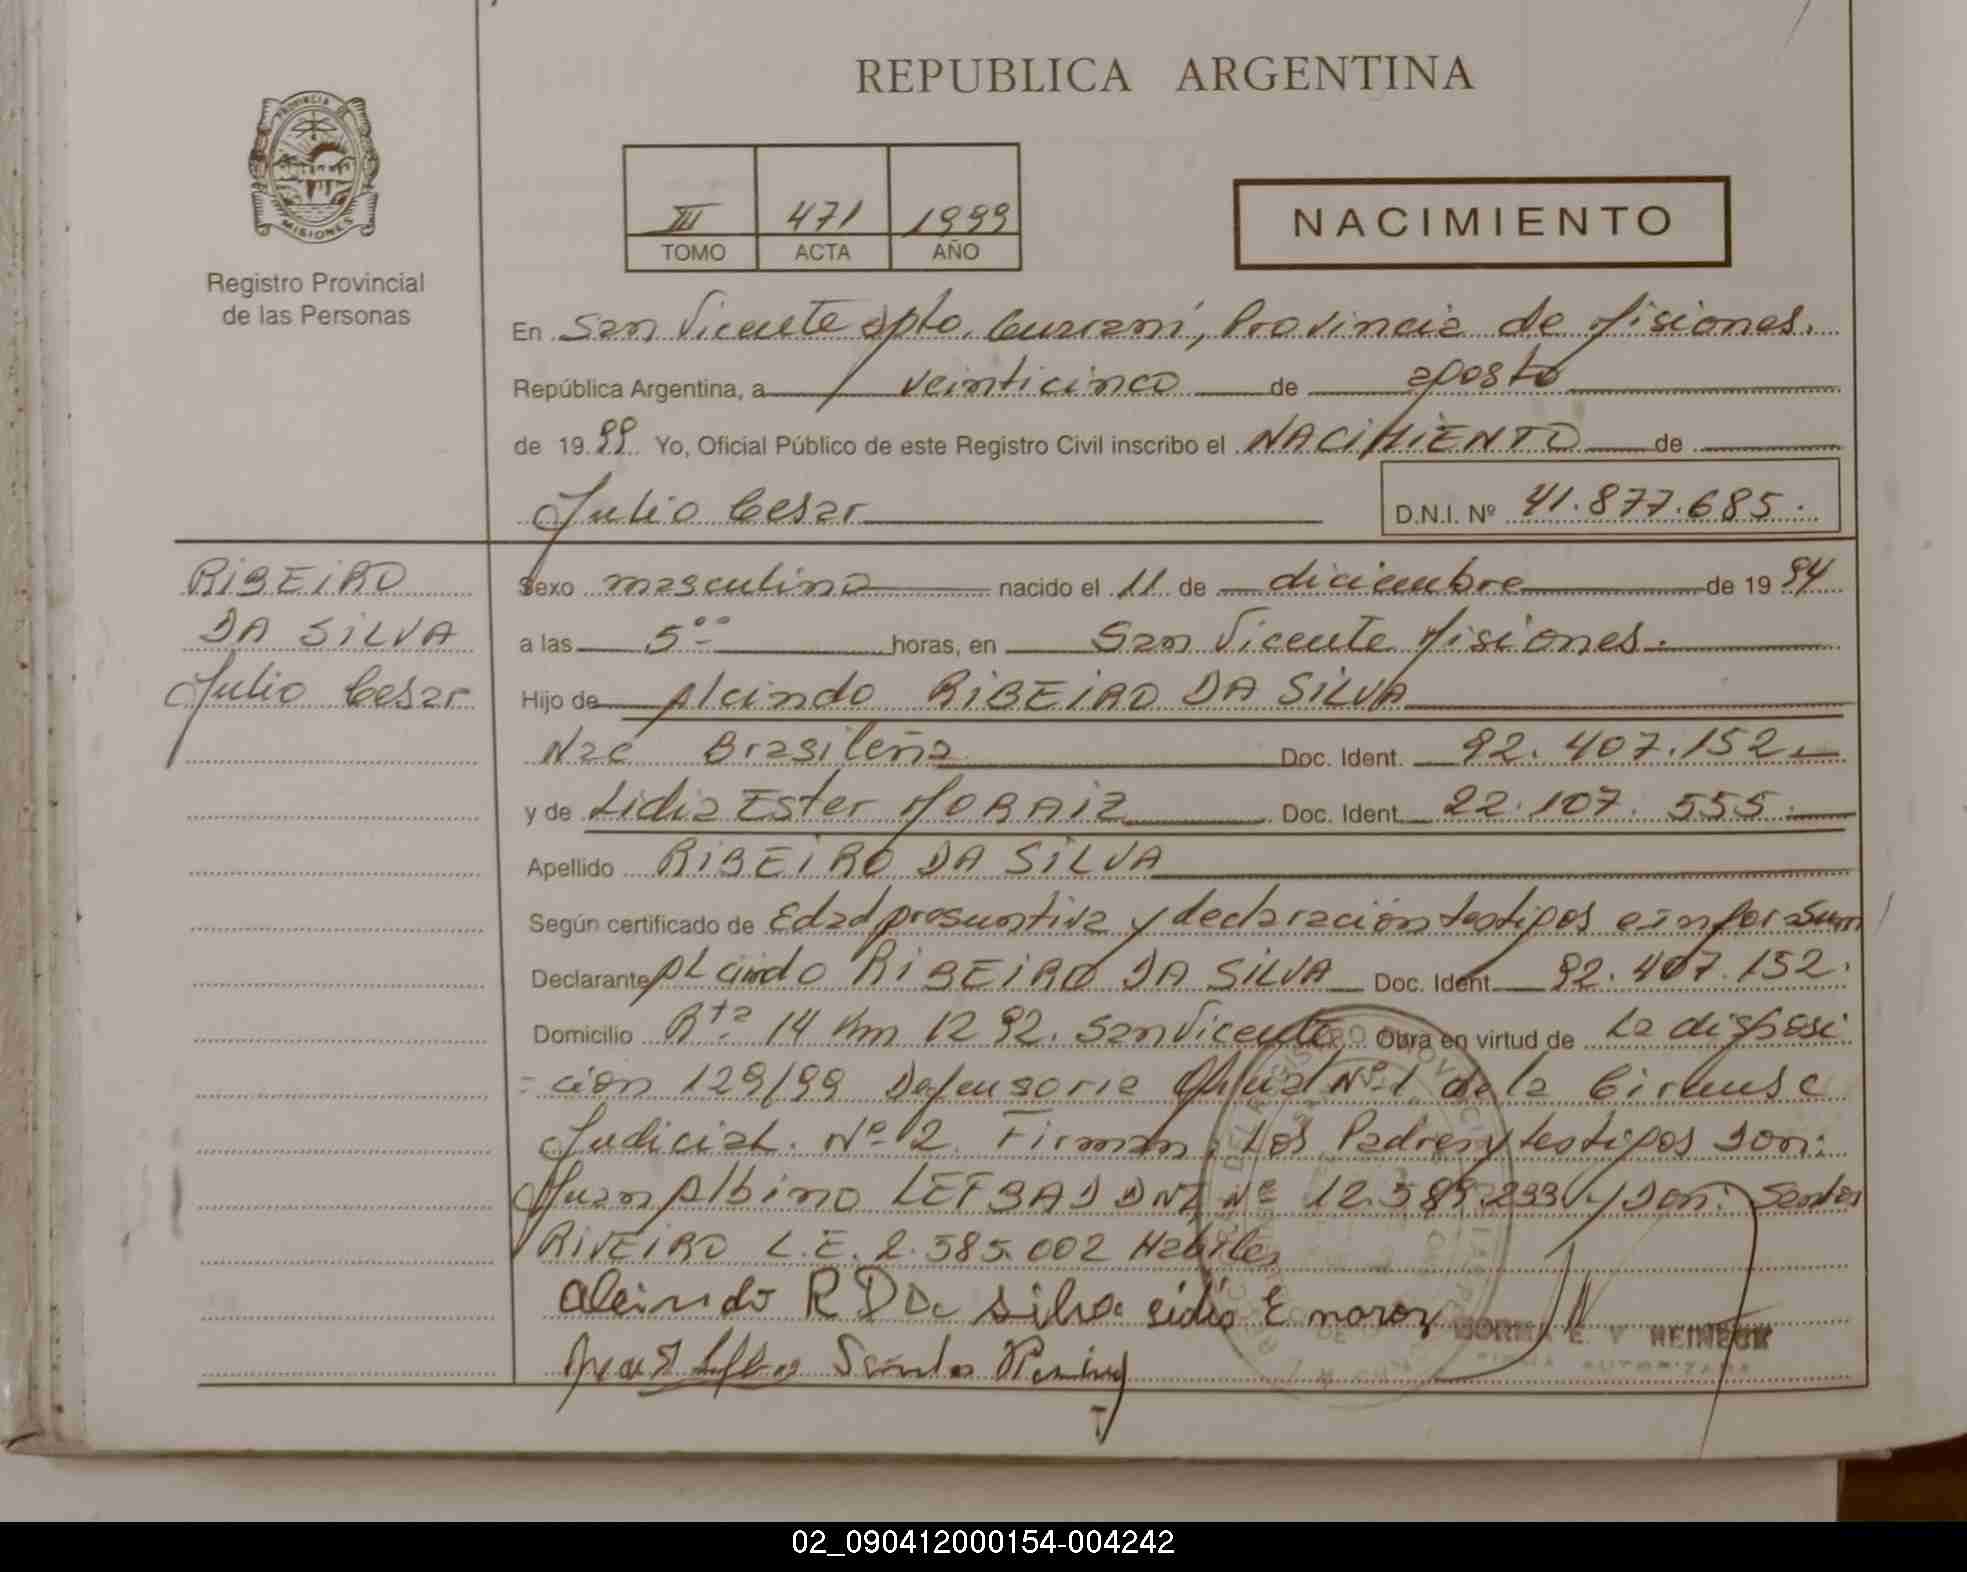 REPUBLICA ARGENTINA
PROVINCIA DE
MISIONES
Registro Provincial
de las Personas
III 471 1999
TOMO ACTA AÑO
NACIMIENTO
En San Vicente dpto. Guarani, Provincia de Misiones.
República Argentina, a veinticinco de agosto
de 1999 Yo, Oficial Público de este Registro Civil inscribo el NACIMIENTO de
Julio Cesar D.N.I. Nº 41.877.685.
RIBEIRO
DA SILVA
Julio Cesar
Sexo masculino nacido el 11 de diciembre de 1994
a las 5⁰⁰ horas, en San Vicente Misiones.
Hijo de Alcindo RIBEIRO DA SILVA
Nac Brasileña Doc. Ident. 92.407.152.
y de Lidia Ester MORAIZ Doc. Ident. 22.107.555.
Apellido RIBEIRO DA SILVA
Según certificado de Edad presuntiva y declaración testigos e infor Sum
Declarante Alcindo RIBEIRO DA SILVA Doc. Ident. 92.407.152.
Domicilio Rta 14 Km 1292. San Vicente Obra en virtud de La disposi
-ción 129/99 Defensoria Oficial Nº 1 de la Circunsc
Judicial. Nº 2. Firman: Los Padres y testigos Don:
Juan Albino LEFBAD DNI Nº 12.589.233 y Don: Santos
RIVEIRO L.E. 2.585.002 Habiles
alcindo R D Da silva Lidia E moroz
NORMA E. V REINECK
FIRMA AUTORIZADA
02_090412000154-004242